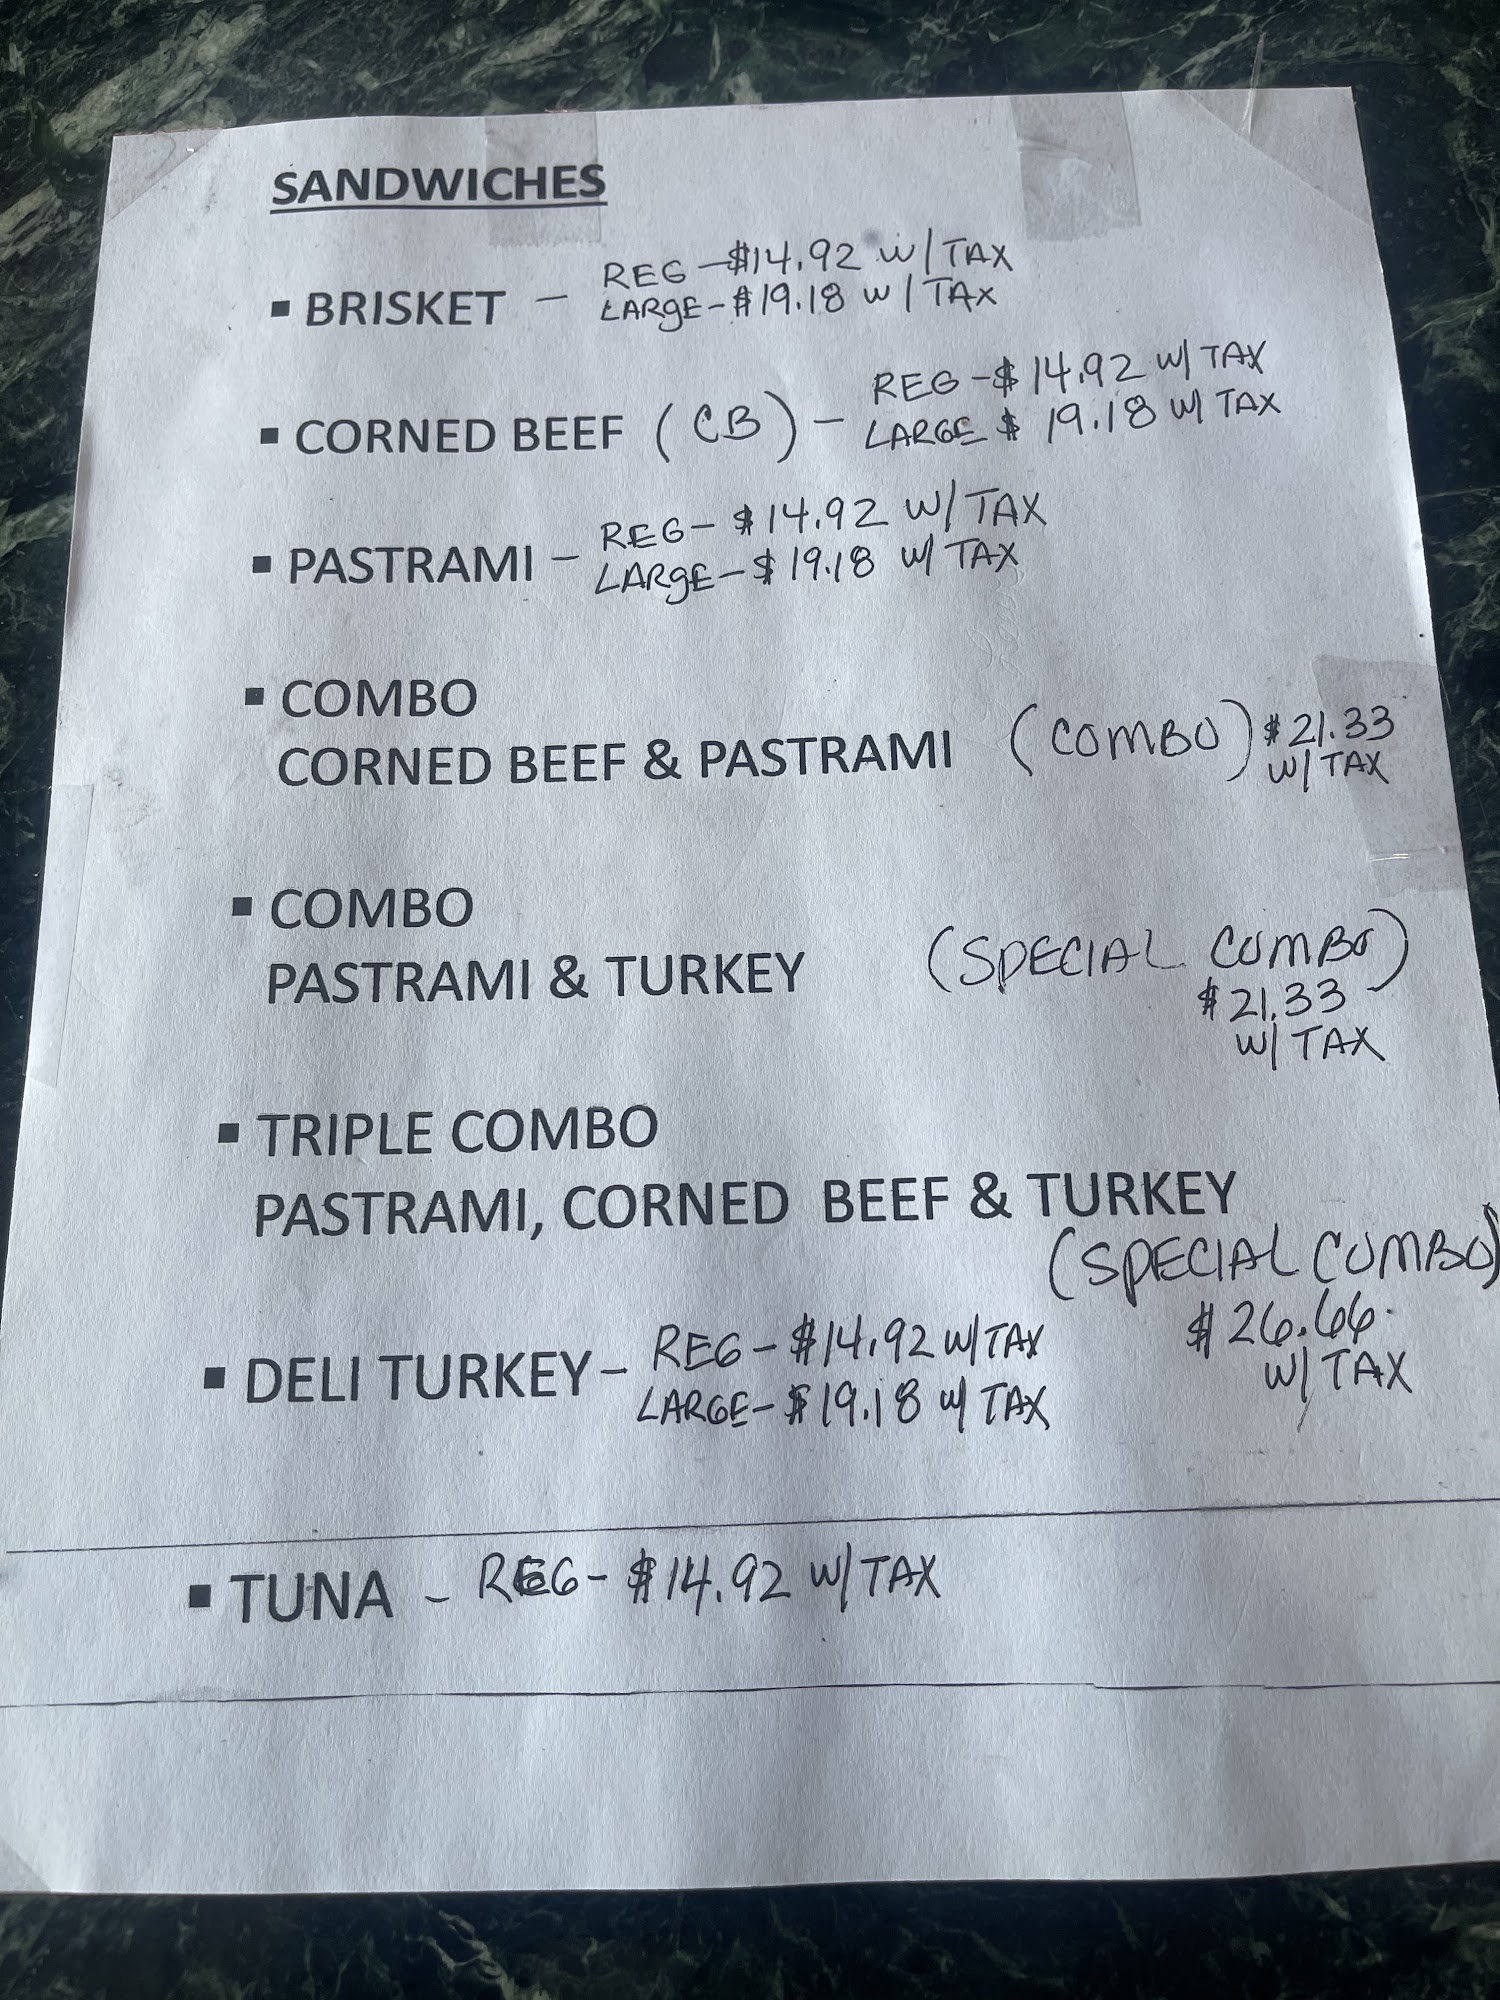 SANDWICHES
REG-$14.92 W/TAX
▪ BRISKET - LARGE-$19.18 W/TAX
REG-$14.92 W/TAX
▪ CORNED BEEF (CB) - LARGE $19.18 W/TAX
REG-$14.92 W/TAX
▪ PASTRAMI - LARGE-$19.18 W/TAX
▪ COMBO
CORNED BEEF & PASTRAMI (COMBO) $21.33
W/TAX
▪ COMBO
PASTRAMI & TURKEY (SPECIAL COMBO)
$21.33
W/TAX
▪ TRIPLE COMBO
PASTRAMI, CORNED BEEF & TURKEY
(SPECIAL COMBO)
$26.66
W/TAX
REG-$14.92 W/TAX
▪ DELI TURKEY- LARGE-$19.18 W/TAX
▪ TUNA - REG-$14.92 W/TAX